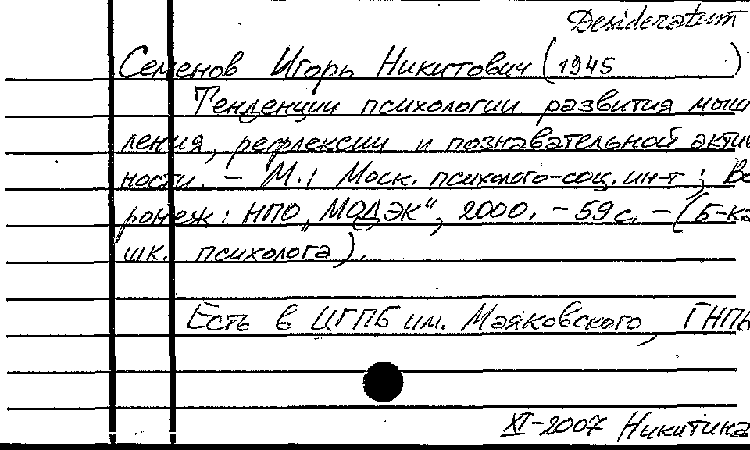 Desideratum
Семенов Игорь Никитович (1945 )
Тенденции психологии развития мыш
ления, рефлексии и познавательной актив
ности. – М.: Моск. психолого-соц. ин-т ; Во
ронеж : НПО „МОДЭК“, 2000. – 59 с. – (Б-ка
шк. психолога).
Есть в ЦГПБ им. Маяковского, ГНПБ
XI-2007 Никитина